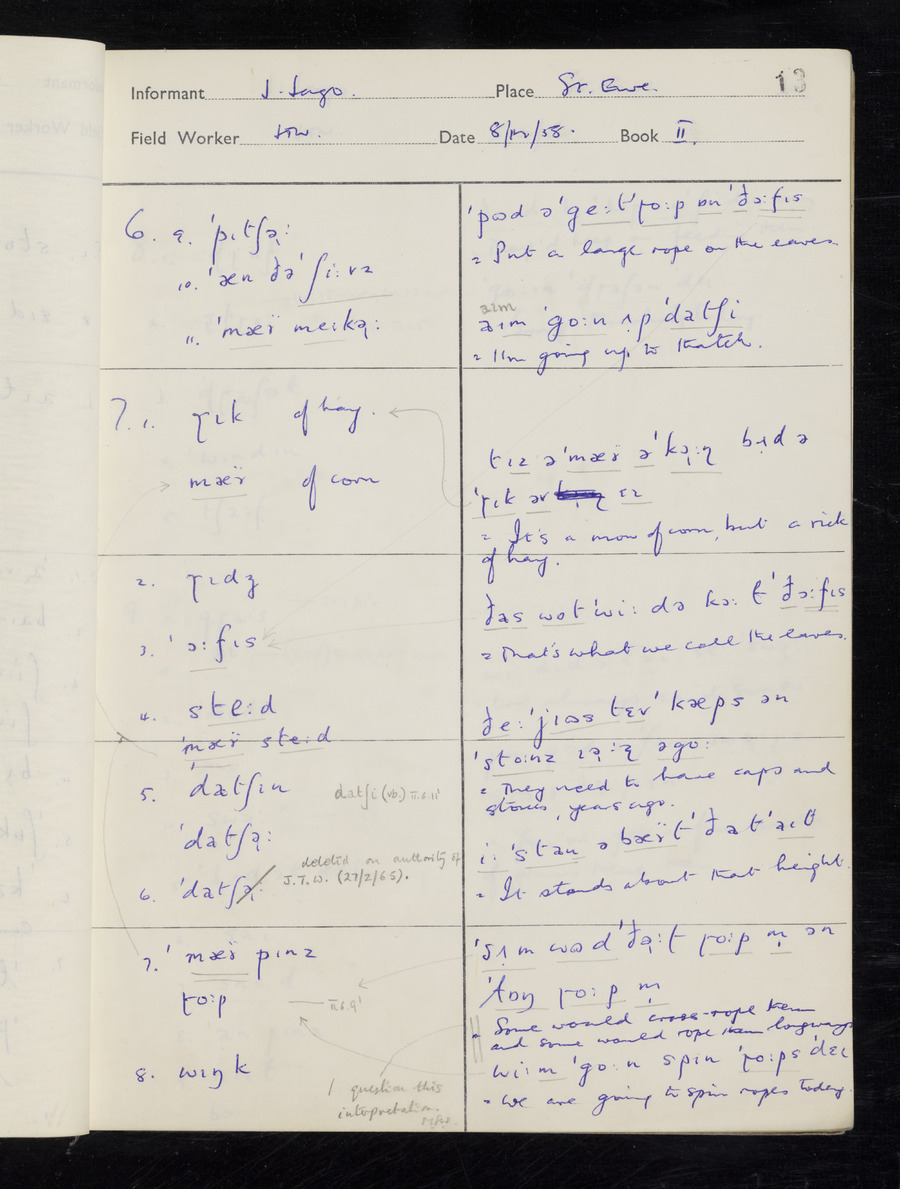 Informant J. Lago. Place St. Ewe. 13
Field Worker JTW. Date 8/IV/58. Book II.
6. 9. ˈpɪtʃə̨ː
10. ˈæn ðəˈʃiːvz
11. ˈmæï meːkə̨ː
7. 1. ɽɪk of hay.
mæï of corn
2. ɽɪdʒ
3. ˈɔːfɪs
4. steːd
ˈmæï steːd
5. ˈdætʃɪn datʃi (vb.) II.6.11
ˈdatʃə̨ː
deleted on authority of
J.T.W. (27/2/65).
6. ˈdatʃə̨ː
7. ˈmæï pɪnz
ɽoːp II.6.9
8. wɪŋk
I question this
interpretation.
ˈpʊd əˈgeːtˈɽoːp ɒn ˈðɔːfɪs
= Put a large rope on the eaves.
aɪm
aɪm ˈgoːn ʌp ˈdatʃi
= I'm going up to thatch.
tɪz əˈmæï əˈkə̨ːɳ bʌd ə
ˈɽɪk əv ɛɪ
= It's a mow of corn, but a rick
of hay.
ðas wɒtˈwiː də kɔː tˈðɔːfɪs
= That's what we call the eaves.
ðeːˈjɪʊs tɛvˈkæps ən
ˈstoːnz ɪə̨ːz̨ əgoː
= They need to have caps and
stones, years ago.
iːˈstan ə bæïtˈðatˈaɪt
= It stands about that height.
ˈsʌm wʊdˈðə̨ːt ɽoːp m̩ ən
ˈlɒŋ ɽoːp m̩
= Some would cross-rope them
and some would rope them longways
wiːm ˈgoːn spɪn ˈɽoːps ˈdeɪ
= We are going to spin ropes today.